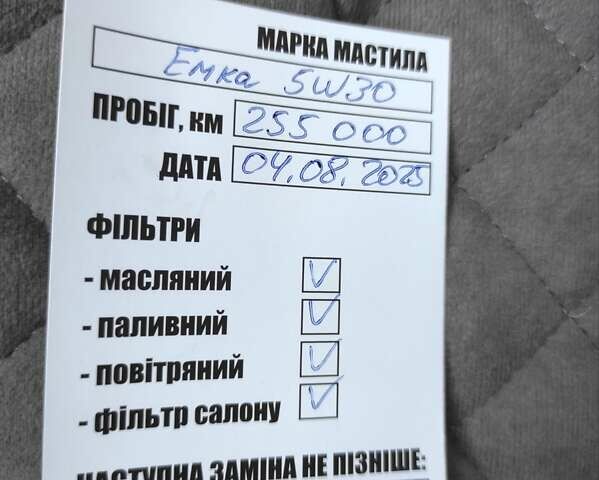 МАРКА МАСТИЛА
Емка 5W30
ПРОБІГ, км 255 000
ДАТА 04.08.2025
ФІЛЬТРИ
- масляний ✓
- паливний ✓
- повітряний ✓
- фільтр салону ✓
НАСТУПНА ЗАМІНА НЕ ПІЗНІШЕ: